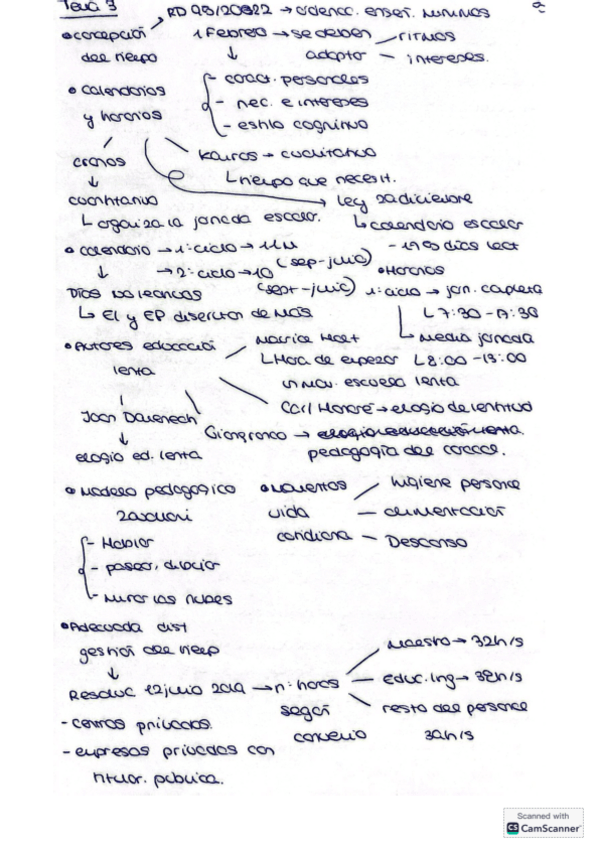 Tema 3
RD 95/2022 → ordenac. enseñ. mínimas
• concepción del tiempo
1 Febrero → se deben adaptar
- ritmos
- intereses.
- caract. personales
- nec. e intereses
- estilo cognitivo
• calendarios y horarios
cronos
↓
cuantitativo
└ organiza la jornada escolar.
kairos → cualitativo
└ tiempo que necesit.
ley 20 diciembre
└ calendario escolar
• calendario → 1º ciclo → 11M (sep-julio)
→ 2º ciclo → 10 (sept-junio)
↓
Días no lectivos
└ EI y EP disfrutan de más
• Horarios
1º ciclo → jorn. completa
└ 7:30 - 17:30
└ Media jornada
└ 8:00 - 13:00
• Autores educación lenta
Maurice Holt
└ Hora de empezar un mov. escuela lenta
Carl Honoré → elogio de lentitud
Joan Domenech
↓
elogio ed. lenta
Gianfranco → pedagogía del caracol.
• Modelo pedagógico Zavalloni
- Hablar
- pasear, dibujar
- mirar las nubes
• Momentos vida cotidiana
- Higiene personal
- alimentación
- Descanso
• Adecuada dist
gestión del tiemp
↓
Resoluc 12 julio 2019 → nº horas según convenio
Maestro → 32h/s
Educ. Ing → 38h/s
resto del personal
- centros privados.
- empresas privadas con titular. pública.
Scanned with
CS CamScanner